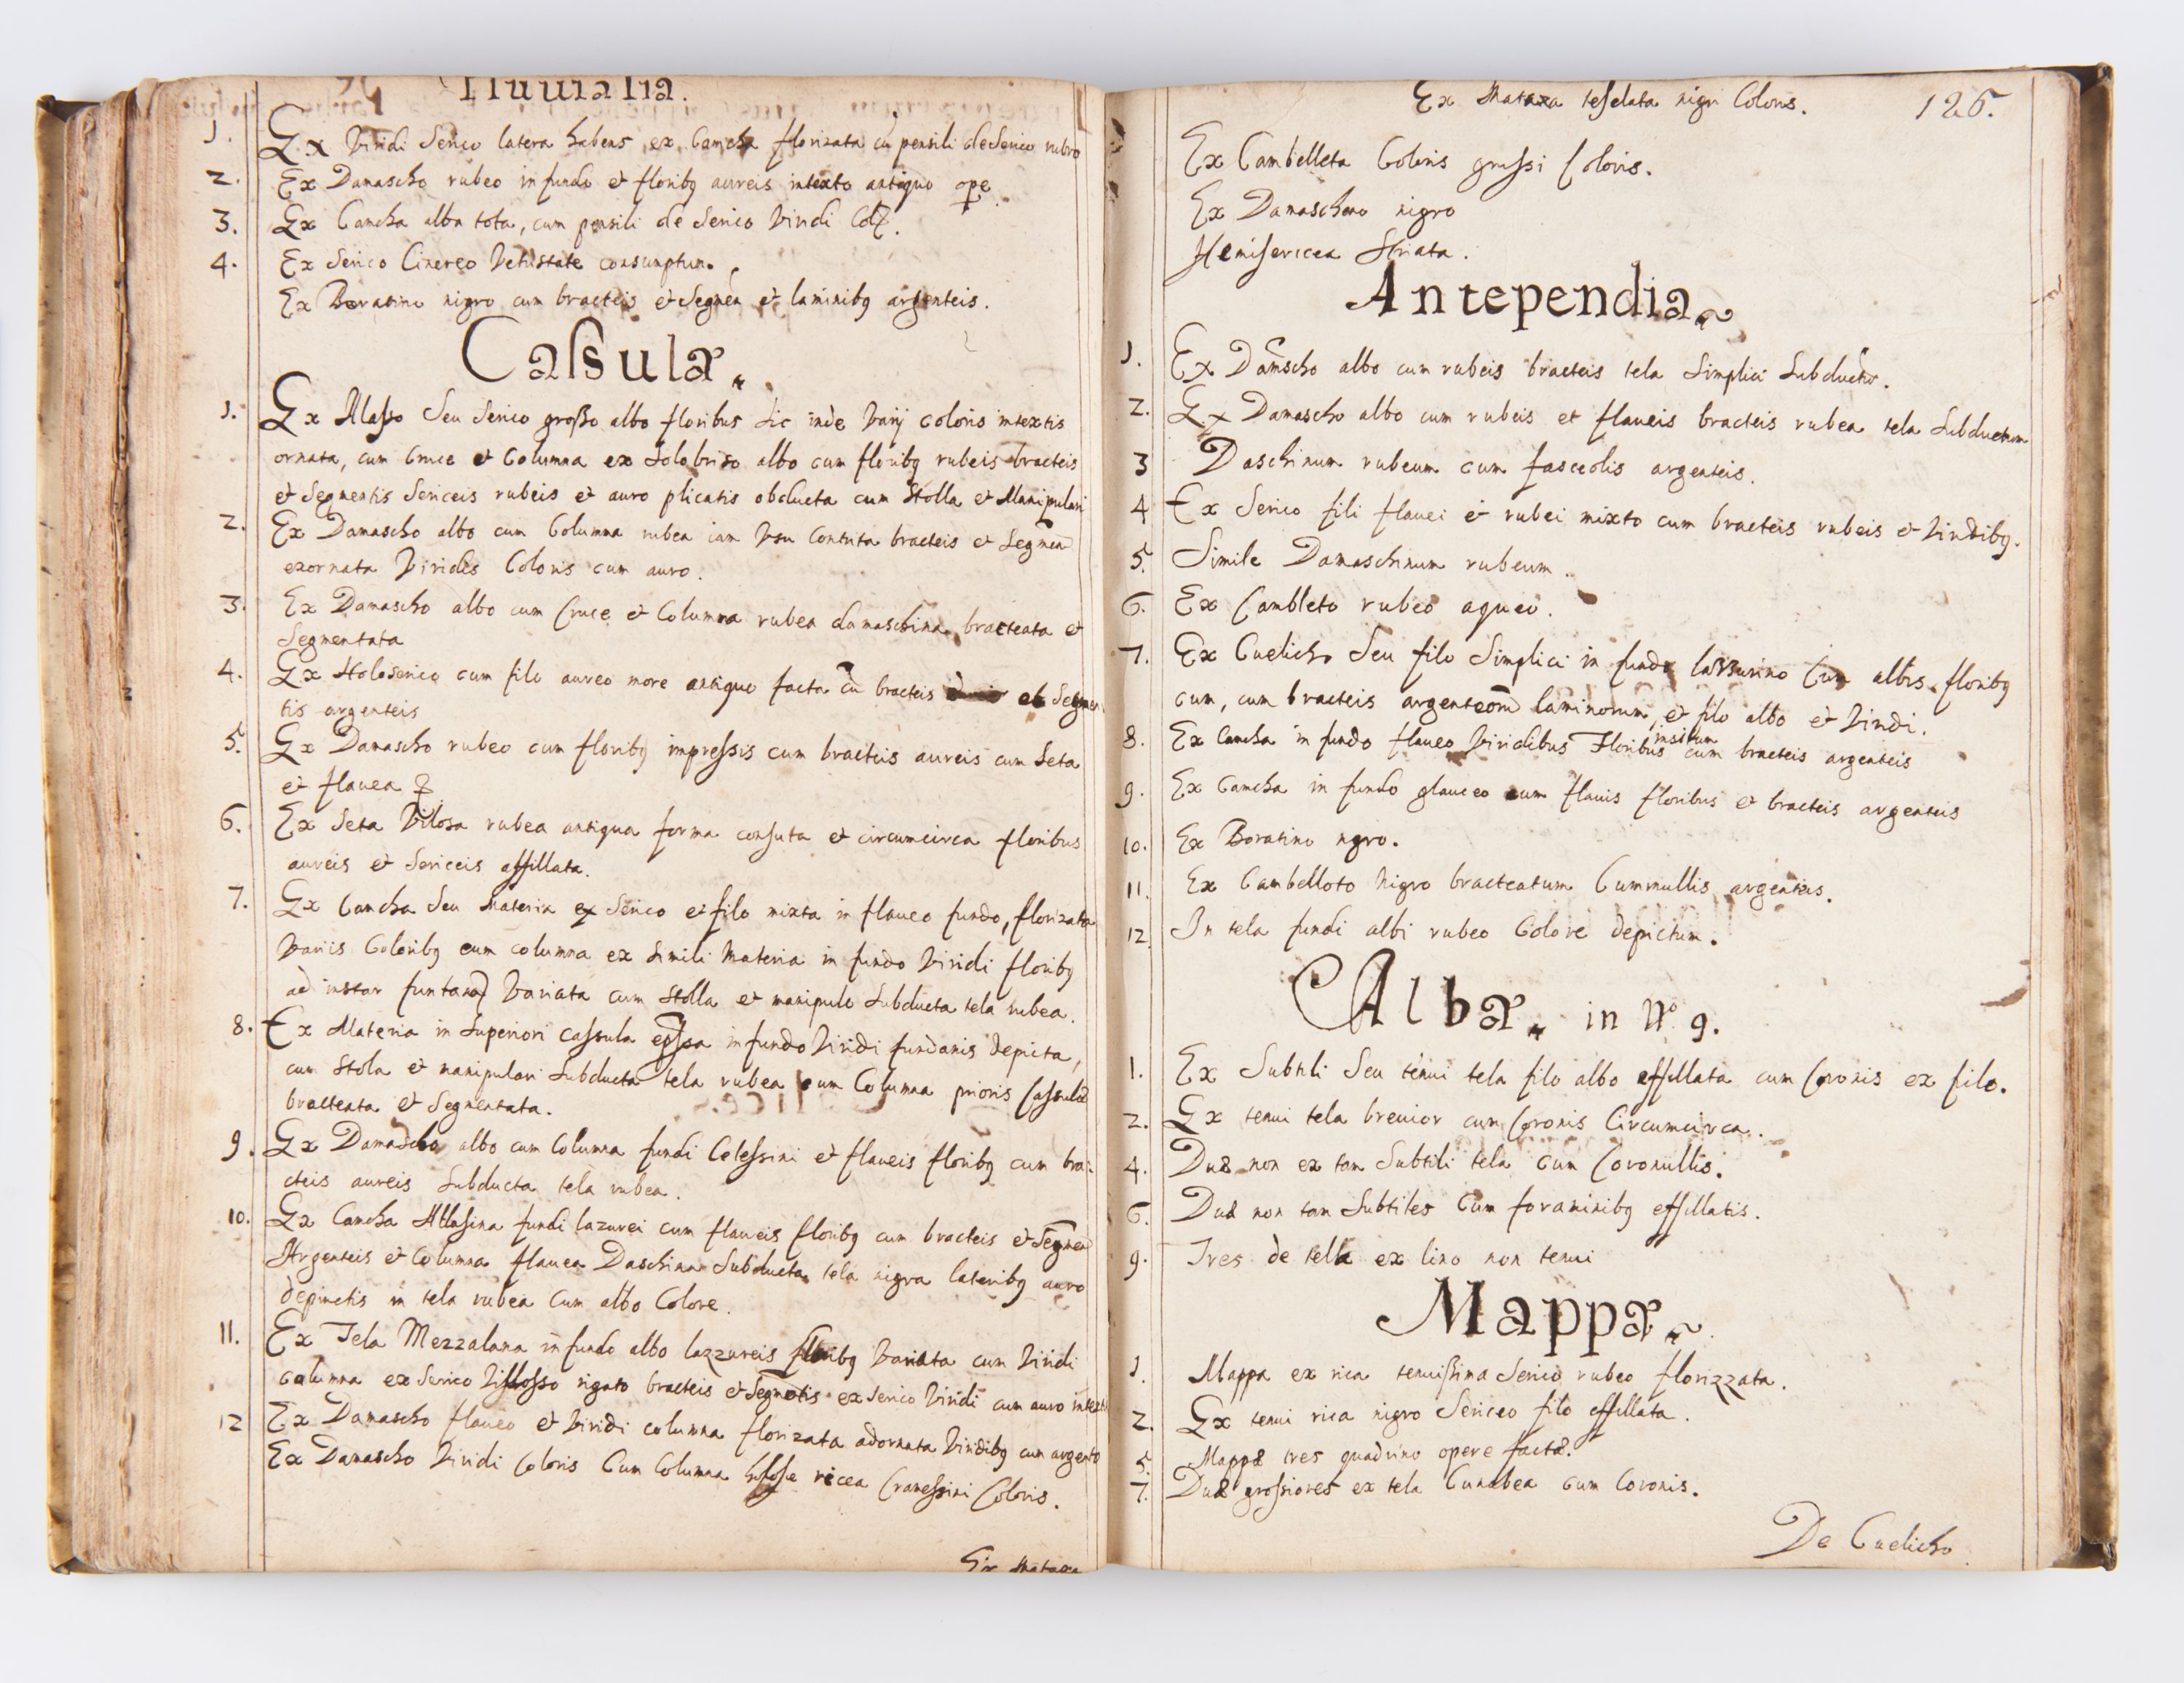 Pluuialia.
1. Ex Viridi Serico latera habens ex Camcha florizata cũ pensili de Serico rubro
2. Ex Damascho rubeo in fundo et floribꝫ aureis intexto antiquo ope
3. Ex Camcha alba tota, cum pensili de Serico Viridi
4. Ex Serico Cinereo Vetustate consumptum.
Ex Boratino nigro cum bracteis et Segmen et laminibꝫ argenteis.
Caſsulæ.
1. Ex Alaſso Seu Serico groſso albo floribus hic inde Varij coloris intextis
ornata, cum Cruce et Columna ex albo cum floribꝫ rubeis bracteis
et Segmentis Sericeis rubeis et auro plicatis obducta cum Stolla et Manipulari
2. Ex Damascho albo cum Columna rubea iam Vsu Contrita bracteis et Segmen
exornata Viridis Coloris cum auro.
3. Ex Damascho albo cum Cruce et Columna rubea damaschina bracteata et
Segmentata
4. Ex Holoserico cum filo aureo more antiquo facta cũ bracteis et Segmen
tis argenteis
5. Ex Damascho rubeo cum floribꝫ impreſsis cum bracteis aureis cum Seta
et flauea
6. Ex Seta Vilosa rubea antiqua forma consuta et circumcirca floribus
aureis et Sericeis affillata.
7. Ex Camcha Seu Materia ex Serico et filo mixta in flaueo fundo, florizata
Variis Coloribꝫ cum columna ex Simili Materia in fundo Viridi floribꝫ
ad instar Variata cum Stolla et manipulo Subducta tela rubea.
8. Ex Materia in Superiori caſsula in fundo Viridi depicta,
cum Stola et manipulari Subducta tela rubea cum Columna prioris Caſsulæ
bracteata et Segmentata.
9. Ex Damascho albo cum Columna fundi Celeſtini et flaueis floribꝫ cum bra-
cteis aureis Subducta tela rubea.
10. Ex Camcha Atlaſina fundi lazurei cum flaueis floribꝫ cum bracteis et Segmen
Argenteis et Columna flauea Daschina Subducta tela nigra lateribꝫ auro
depinctis in tela rubea Cum albo Colore.
11. Ex Tela Mezzalana in fundo albo lazzureis floribꝫ Variata cum Viridi
columna ex Serico Villoſso rigato bracteis et Segmētis ex Serico Viridi cum auro
12 Ex Damascho flaueo et Viridi columna florizata adornata Viridibꝫ cum argento
Ex Damascho Viridi Coloris Cum Columna Coloris.
Ex Mataxa
Ex Mataxa teſelata nigri Coloris. 126.
Ex Cambelleta Coloris groſsi Coloris.
Ex Damascheno nigro
Hemisericea Striata.
Antependia
1. Ex Damscho albo cum rubeis bracteis tela Simplici Subducto.
2. Ex Damascho albo cum rubeis et flaueis bracteis rubea tela Subductum
3 Daschinum rubeum cum fasceolis argenteis.
4 Ex Serico fili flauei et rubei mixto cum bracteis rubeis et Viridibꝫ.
5. Simile Damaschinum rubeum.
6. Ex Cambleto rubeo aqueo.
7. Ex Cuelicho Seu filo Simplici in fundo lazzurino Cum albis floribꝫ
cum, cum bracteis laminorum, et filo albo et Viridi.
8. Ex Camcha in fundo flaueo Viridibus Floribus insitum cum bracteis argenteis
9. Ex Camcha in fundo glauceo cum flauis floribus et bracteis argenteis
10. Ex Boratino nigro.
11. Ex Cambelloto nigro bracteatum Cummullis argenteis.
12. In tela fundi albi rubeo Colore depictum.
Albæ. in Nº 9.
1. Ex Subtili Seu tenui tela filo albo effillata cum Coronis ex filo.
2. Ex tenui tela breuior cum Coronis Circumcirca.
4. Duæ non ex tam Subtili tela cum Coronullis.
6. Duæ non tam Subtiles Cum foraminibꝫ effillatis.
9. Tres de tella ex lino non tenui
Mappæ
1. Mappa ex rica tenuiſsima Serico rubeo florizzata.
2. Ex tenui rica nigro Sericeo filo effillata.
5. Mappæ tres quadrino opere factæ.
7. Duæ groſsiores ex tela Canabea cum Coronis.
De Cuelicho